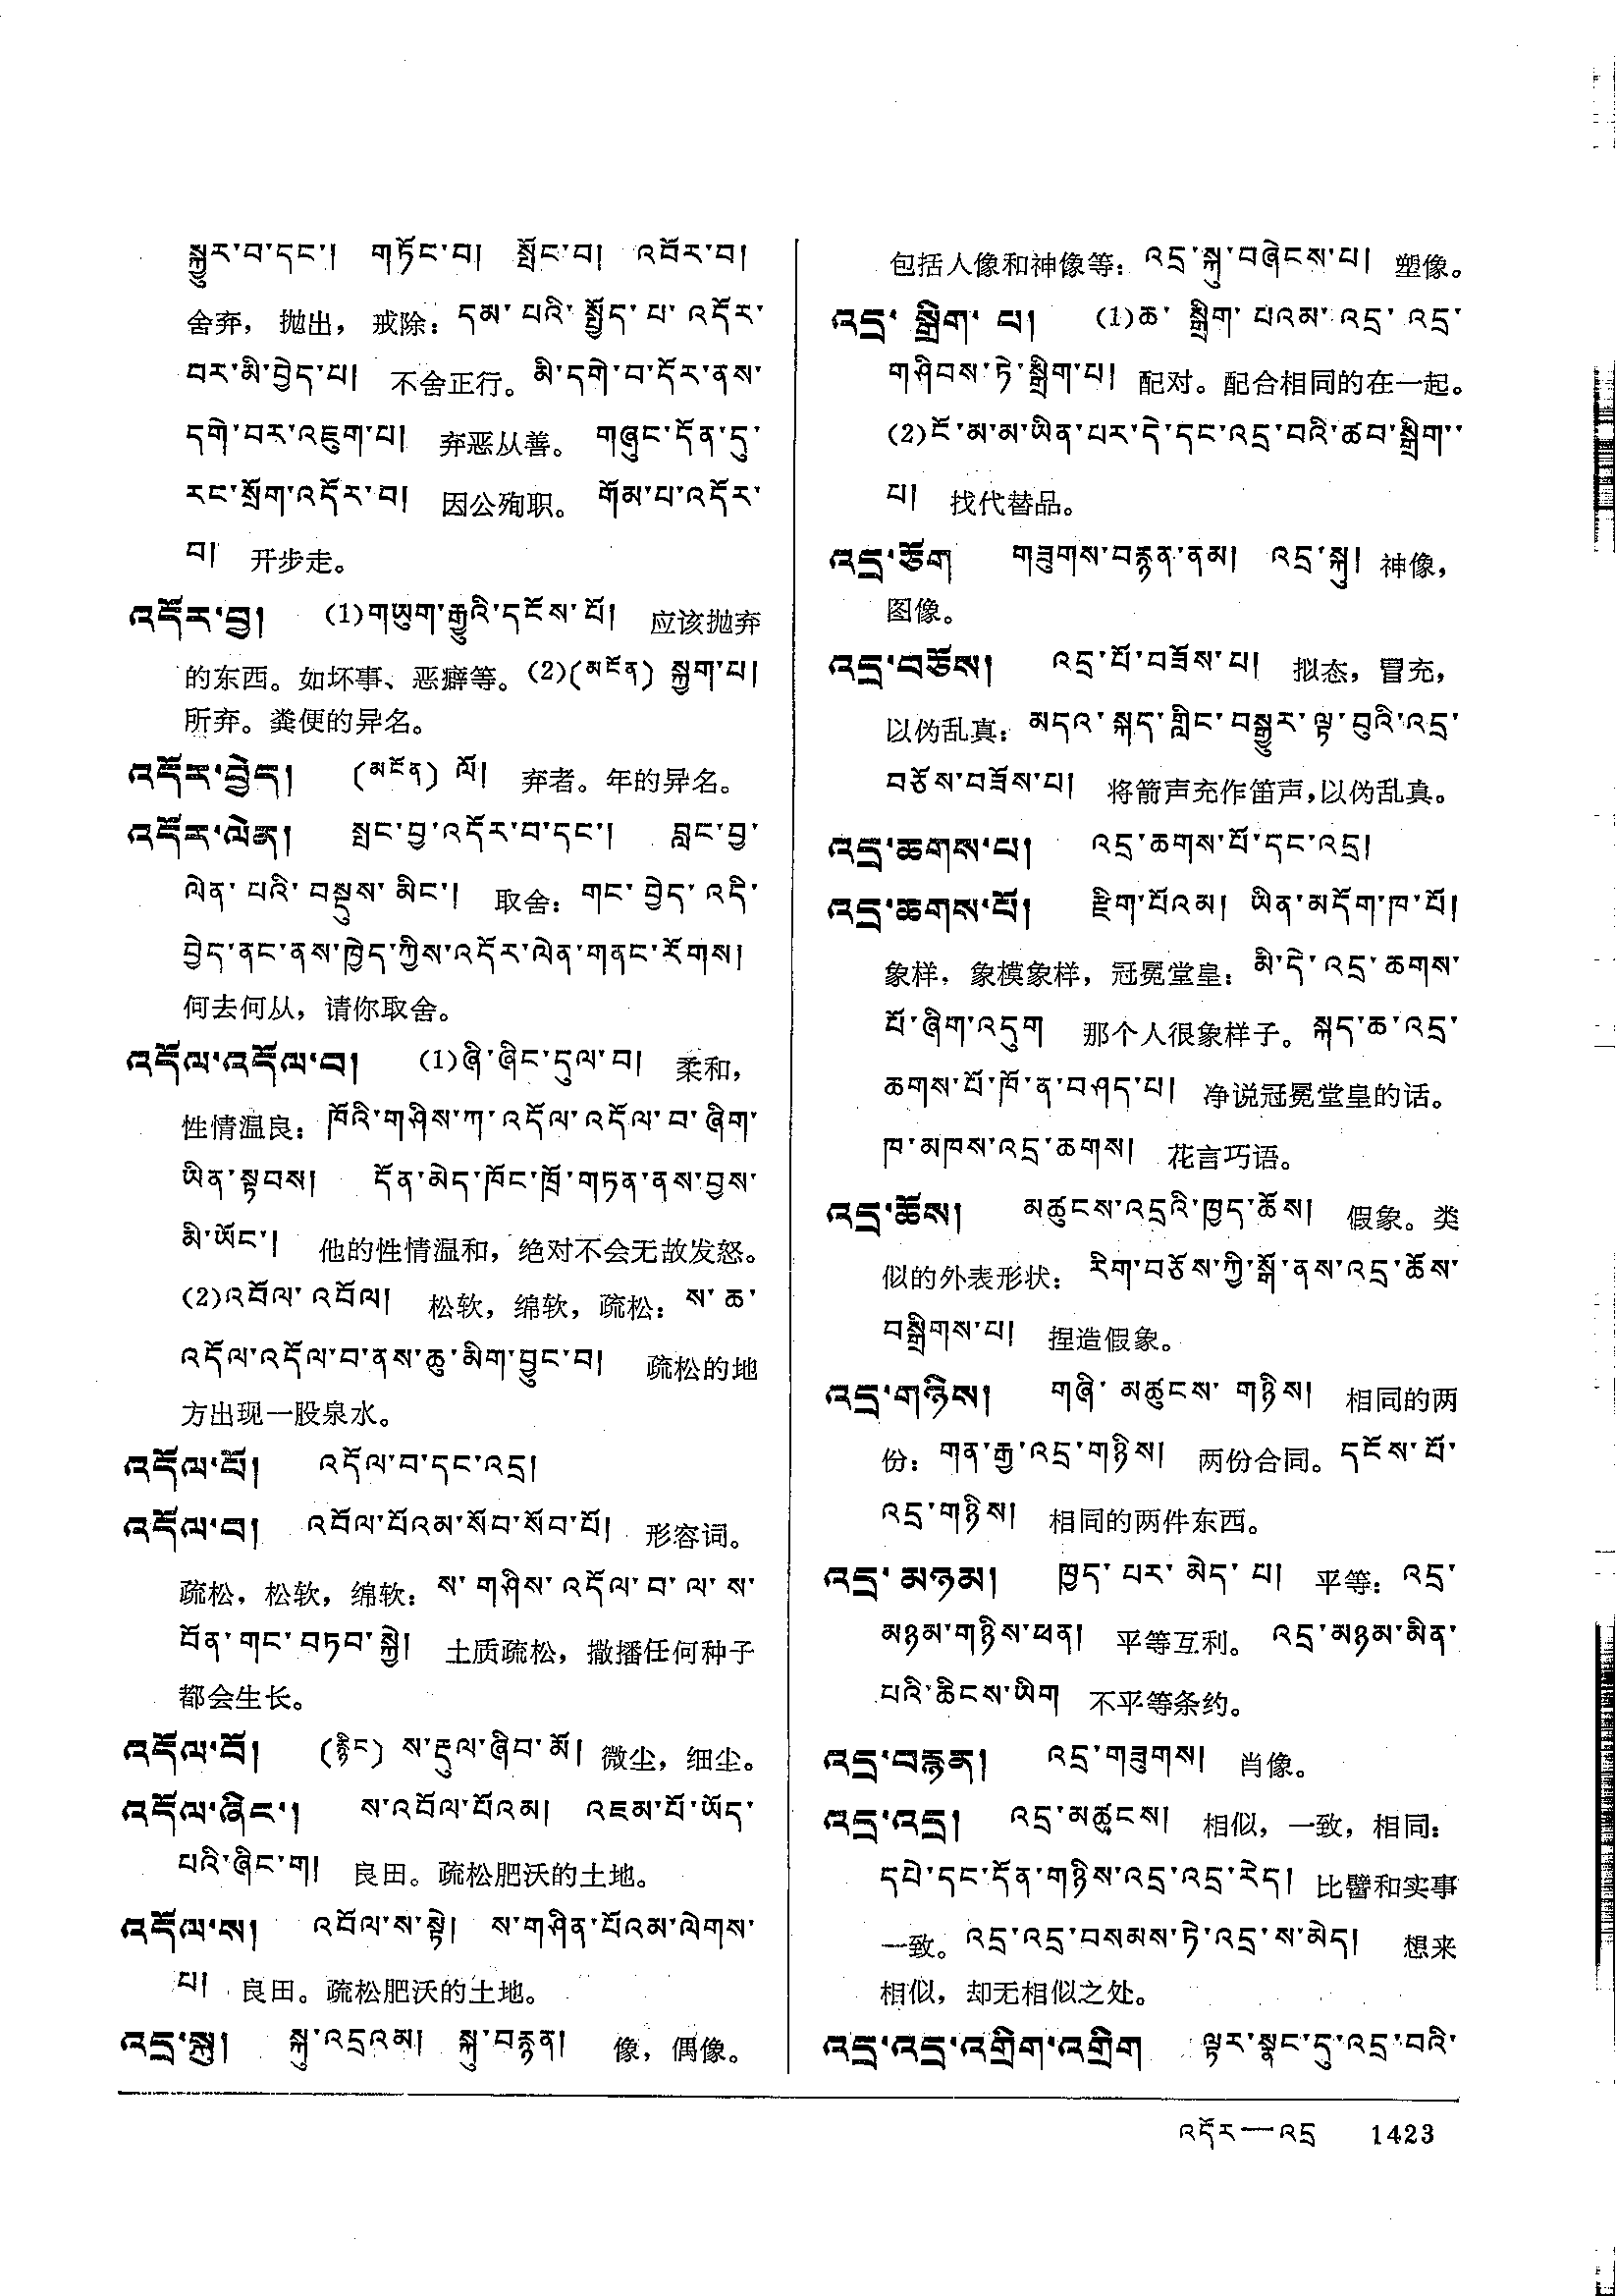 སྐྱུར་བ་དང་། གཏོང་བ། སྤོང་བ། འབོར་བ།
舍弃，抛出，戒除：དམ་པའི་སྤྱོད་པ་འདོར་
བར་མི་བྱེད་པ། 不舍正行。མི་དགེ་བ་དོར་ནས་
དགེ་བར་འཇུག་པ། 弃恶从善。གཞུང་དོན་དུ་
རང་སྲོག་འདོར་བ། 因公殉职。གོམ་པ་འདོར་
བ། 开步走。
འདོར་བྱ། (1)གཡུག་རྒྱུའི་དངོས་པོ། 应该抛弃
的东西。如坏事、恶癖等。(2)(མངོན) སྐྱག་པ།
所弃。粪便的异名。
འདོར་བྱེད། (མངོན) ལོ། 弃者。年的异名。
འདོར་ལེན། སྤང་བྱ་འདོར་བ་དང་། བླང་བྱ་
ལེན་པའི་བསྡུས་མིང་། 取舍：གང་བྱེད་འདི་
བྱེད་ནང་ནས་ཁྱེད་ཀྱིས་འདོར་ལེན་གནང་རོགས།
何去何从，请你取舍。
འདོལ་འདོལ་བ། (1)ཞི་ཞིང་དུལ་བ། 柔和，
性情温良：ཁོའི་གཤིས་ཀ་འདོལ་འདོལ་བ་ཞིག་
ཡིན་སྟབས། དོན་མེད་ཁོང་ཁྲོ་གཏན་ནས་བྱས་
མི་ཡོང་། 他的性情温和，绝对不会无故发怒。
(2)འབོལ་འབོལ། 松软，绵软，疏松：ས་ཆ་
འདོལ་འདོལ་བ་ནས་ཆུ་མིག་བྱུང་བ། 疏松的地
方出现一股泉水。
འདོལ་པོ། འདོལ་བ་དང་འདྲ།
འདོལ་བ། འབོལ་པོའམ་སོབ་སོབ་པོ། 形容词。
疏松，松软，绵软：ས་གཤིས་འདོལ་བ་ལ་ས་
བོན་གང་བཏབ་སྐྱེ། 土质疏松，撒播任何种子
都会生长。
འདོལ་བོ། (རྙིང) ས་རྡུལ་ཞིབ་མོ། 微尘，细尘。
འདོལ་ཞིང་། ས་འབོལ་པོའམ། འཇམ་པོ་ཡོད་
པའི་ཞིང་ག། 良田。疏松肥沃的土地。
འདོལ་ས། འབོལ་ས་སྟེ། ས་གཤིན་པོའམ་ལེགས་
པ། 良田。疏松肥沃的土地。
འདྲ་སྐུ། སྐུ་འདྲའམ། སྐུ་བརྙན། 像，偶像。
包括人像和神像等：འདྲ་སྐུ་བཞེངས་པ། 塑像。
འདྲ་སྒྲིག་པ། (1)ཆ་སྒྲིག་པའམ་འདྲ་འདྲ་
གཤིབས་ཏེ་སྒྲིག་པ། 配对。配合相同的在一起。
(2)ངོ་མ་མ་ཡིན་པར་དེ་དང་འདྲ་བའི་ཚབ་སྒྲིག་
པ། 找代替品。
འདྲ་ཅོག གཟུགས་བརྙན་ནམ། འདྲ་སྐུ། 神像，
图像。
འདྲ་བཅོས། འདྲ་པོ་བཟོས་པ། 拟态，冒充，
以伪乱真：མདའ་སྐད་གླིང་བསྒྱུར་ལྟ་བུའི་འདྲ་
བཅོས་བཟོས་པ། 将箭声充作笛声，以伪乱真。
འདྲ་ཆགས་པ། འདྲ་ཆགས་པོ་དང་འདྲ།
འདྲ་ཆགས་པོ། རྫིག་པོའམ། ཡིན་མདོག་ཁ་པོ།
象样，象模象样，冠冕堂皇：མི་དེ་འདྲ་ཆགས་
པོ་ཞིག་འདུག 那个人很象样子。སྐད་ཆ་འདྲ་
ཆགས་པོ་ཁོ་ན་བཤད་པ། 净说冠冕堂皇的话。
ཁ་མཁས་འདྲ་ཆགས། 花言巧语。
འདྲ་ཆོས། མཚུངས་འདྲའི་ཁྱད་ཆོས། 假象。类
似的外表形状：རིག་བཅོས་ཀྱི་སྒོ་ནས་འདྲ་ཆོས་
བསྒྲིགས་པ། 捏造假象。
འདྲ་གཉིས། གཞི་མཚུངས་གཉིས། 相同的两
份：གན་རྒྱ་འདྲ་གཉིས། 两份合同。དངོས་པོ་
འདྲ་གཉིས། 相同的两件东西。
འདྲ་མཉམ། ཁྱད་པར་མེད་པ། 平等：འདྲ་
མཉམ་གཉིས་ཕན། 平等互利。འདྲ་མཉམ་མིན་
པའི་ཆིངས་ཡིག 不平等条约。
འདྲ་བརྙན། འདྲ་གཟུགས། 肖像。
འདྲ་འདྲ། འདྲ་མཚུངས། 相似，一致，相同：
དཔེ་དང་དོན་གཉིས་འདྲ་འདྲ་རེད། 比譬和实事
一致。འདྲ་འདྲ་བསམས་ཏེ་འདྲ་ས་མེད། 想来
相似，却无相似之处。
འདྲ་འདྲ་འགྲིག་འགྲིག ལྟར་སྣང་དུ་འདྲ་བའི་
འདོར—འདྲ 1423